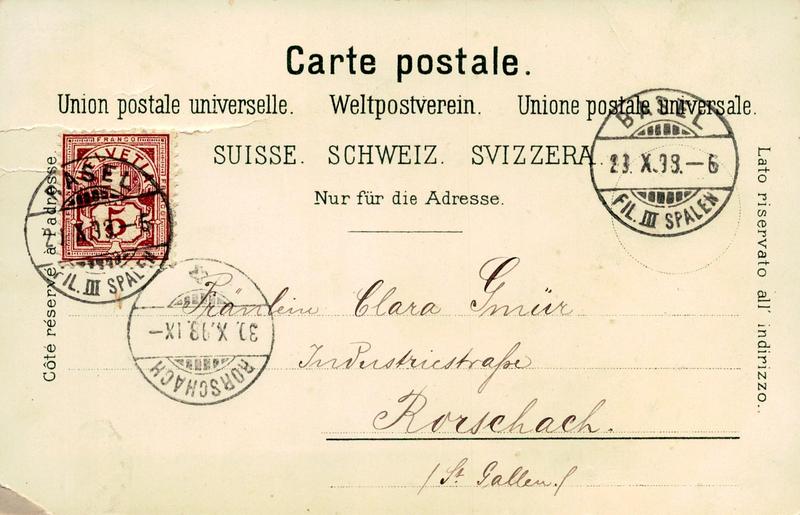 Carte postale.
Union postale universelle. Weltpostverein. Unione postale universale.
SUISSE. SCHWEIZ. SVIZZERA.
Nur für die Adresse.
Côté réservé à l'adresse.
Lato riservato all' indirizzo.
FRANCO
HELVETIA
5
BASEL
X.98.-6
FIL. III SPALEN
BASEL
X.98.-6
FIL. III SPALEN
X.98.IX-
RORSCHACH
Fräulein Clara Gmür
Industriestraße
Rorschach.
/St. Gallen./